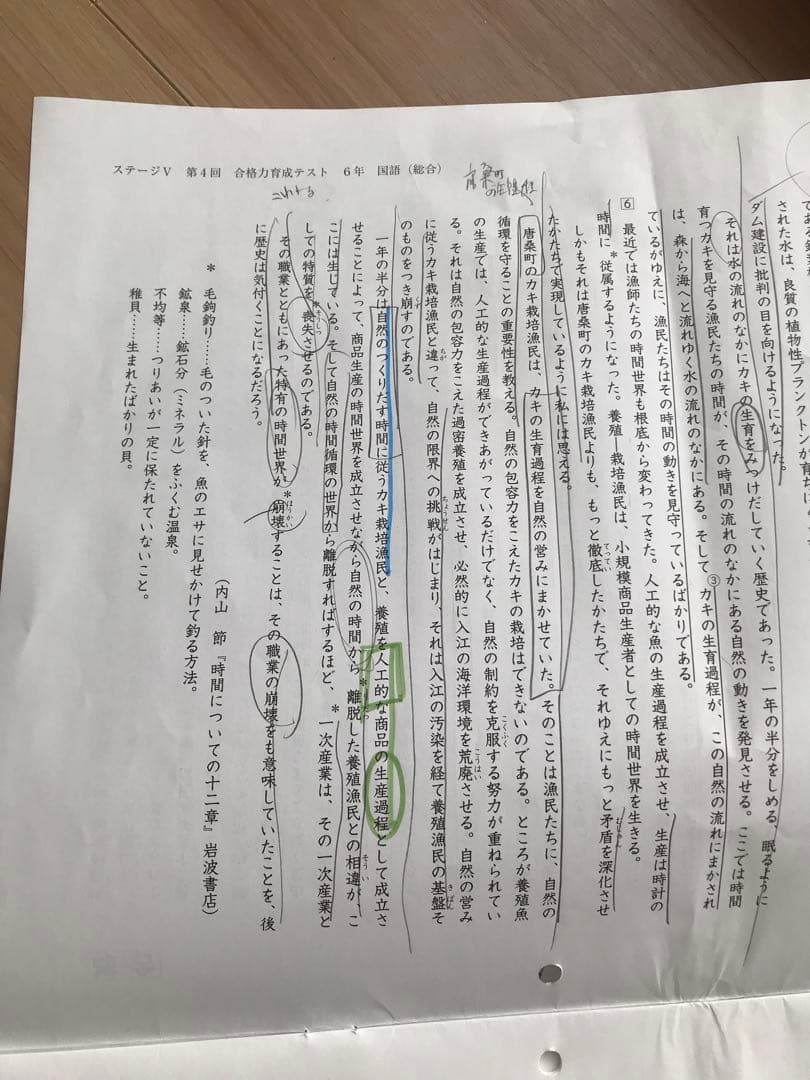 ステージⅤ 第4回 合格力育成テスト 6年 国語（総合）
唐桑町
ダム建設に批判の目を向けるようになった。
された水は、良質の植物性プランクトンが育ち
それは水の流れのなかにカキの生育をみつけだしていく歴史であった。一年の半分をしめる、眠るように
育つカキを見守る漁民たちの時間が、その時間の流れのなかにある自然の動きを発見させる。ここでは時間
は、森から海へと流れゆく水の流れのなかにある。そして③カキの生育過程が、この自然の流れにまかされ
ているがゆえに、漁民たちはその時間の動きを見守っているばかりである。
6 最近では漁師たちの時間世界も根底から変わってきた。人工的な魚の生産過程を成立させ、生産は時計の
時間に＊従属するようになった。養殖―栽培漁民は、小規模商品生産者としての時間世界を生きる。
しかもそれは唐桑町のカキ栽培漁民よりも、もっと徹底したかたちで、それゆえにもっと矛盾を深化させ
たかたちで実現しているように私には思える。
唐桑町のカキ栽培漁民は、カキの生育過程を自然の営みにまかせていた。そのことは漁民たちに、自然の
循環を守ることの重要性を教える。自然の包容力をこえたカキの栽培はできないのである。ところが養殖魚
の生産では、人工的な生産過程ができあがっているだけでなく、自然の制約を克服する努力が重ねられてい
る。それは自然の包容力をこえた過密養殖を成立させ、必然的に入江の海洋環境を荒廃させる。自然の営み
に従うカキ栽培漁民と違って、自然の限界への挑戦がはじまり、それは入江の汚染を経て養殖漁民の基盤そ
のものをつき崩すのである。
一年の半分は自然のつくりだす時間に従うカキ栽培漁民と、養殖を人工的な商品の生産過程として成立さ
せることによって、商品生産の時間世界を成立させながら自然の時間から＊離脱した養殖漁民との相違が、こ
こには生じている。そして自然の時間循環の世界から離脱すればするほど、＊一次産業は、その一次産業と
しての特質を＊喪失させるのである。
その職業とともにあった特有の時間世界が＊崩壊することは、その職業の崩壊をも意味していたことを、後
に歴史は気付くことになるだろう。
（内山 節『時間についての十二章』岩波書店）
＊ 毛鉤釣り……毛のついた針を、魚のエサに見せかけて釣る方法。
鉱泉……鉱石分（ミネラル）をふくむ温泉。
不均等……つりあいが一定に保たれていないこと。
稚貝……生まれたばかりの貝。